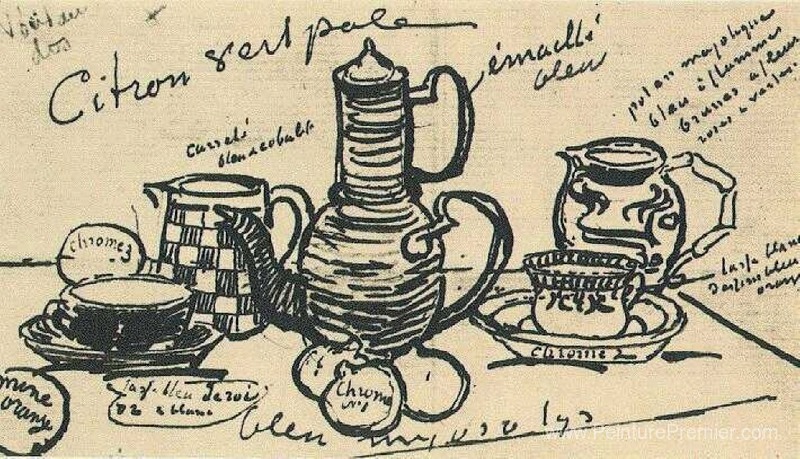 Voir au
dos
Citron vert pale
émaillé
bleu
pot en majolique
bleu à flammes
brunes
roses
carrelé
bleu cobalt
chrome 3
tasse blanche
dessins bleu
orange
chrome 2
mine
orange
chrome
N° 1
tasse bleu de roi
or & blanc
bleu myosotys
www.PeinturePremier.com